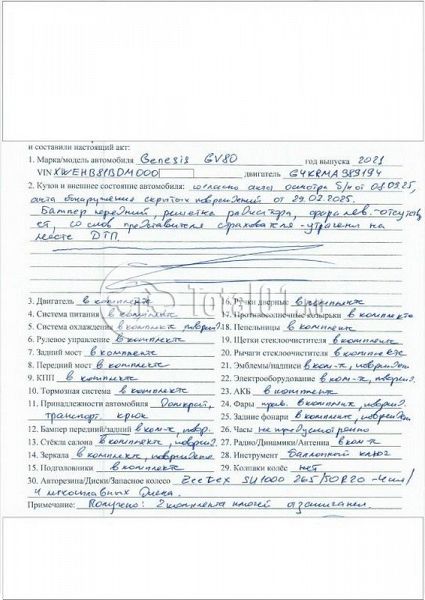 и составили настоящий акт:
1. Марка/модель автомобиля Genesis GV80 год выпуска 2021
VIN XWEHB81BDM000 двигатель G4KRMA383194
2. Кузов и внешнее состояние автомобиля: согласно акта осмотра б/н от 08.09.25,
акта обнаружение скрытых повреждений от 29.07.2025.
Бампер передний, решетка радиатора, фара лев.-отсутству
ет, со слов представителя страхователя - утрачены на
месте ДТП.
Total01.ru
3. Двигатель в комплекте
16. Ручки дверные в комплекте
4. Система питания в комплекте
17. Противосолнечные козырьки в комплекте
5. Система охлаждения в комплекте повреж?
18. Пепельницы в комплекте
6. Рулевое управление в комплекте
19. Щетки стеклоочистителя в комплекте
7. Задний мост в комплекте
20. Рычаги стеклоочистителя в комплекте
8. Передний мост в комплекте
21. Эмблемы/надписи в ком-т,
9. КПП в комплекте
22. Электрооборудование в ком-т, поврежд.
10. Тормозная система в комплекте
23. АКБ в комплекте
11. Принадлежности автомобиля Домкрат,
24. Фары прав. в комплекте, поврежд.
транспорт. крюк
25. Задние фонари в комплекте,
12. Бампер передний/задний в ком-т, повр.
26. Часы не предусмотрено
13. Стёкла салона в комплекте, поврежд.
27. Радио/Динамики/Антенна в ком-т
14. Зеркала в комплекте,
28. Инструмент Баллонный ключ
15. Подголовники в комплекте
29. Колпаки колёс нет
30. Авторезина/Диски/Запасное колесо Zeetex SU1000 265/50R20 -4шт/
4 легкосплавных диска.
Примечание: Получено: 2 комплекта ключей от зажигания.